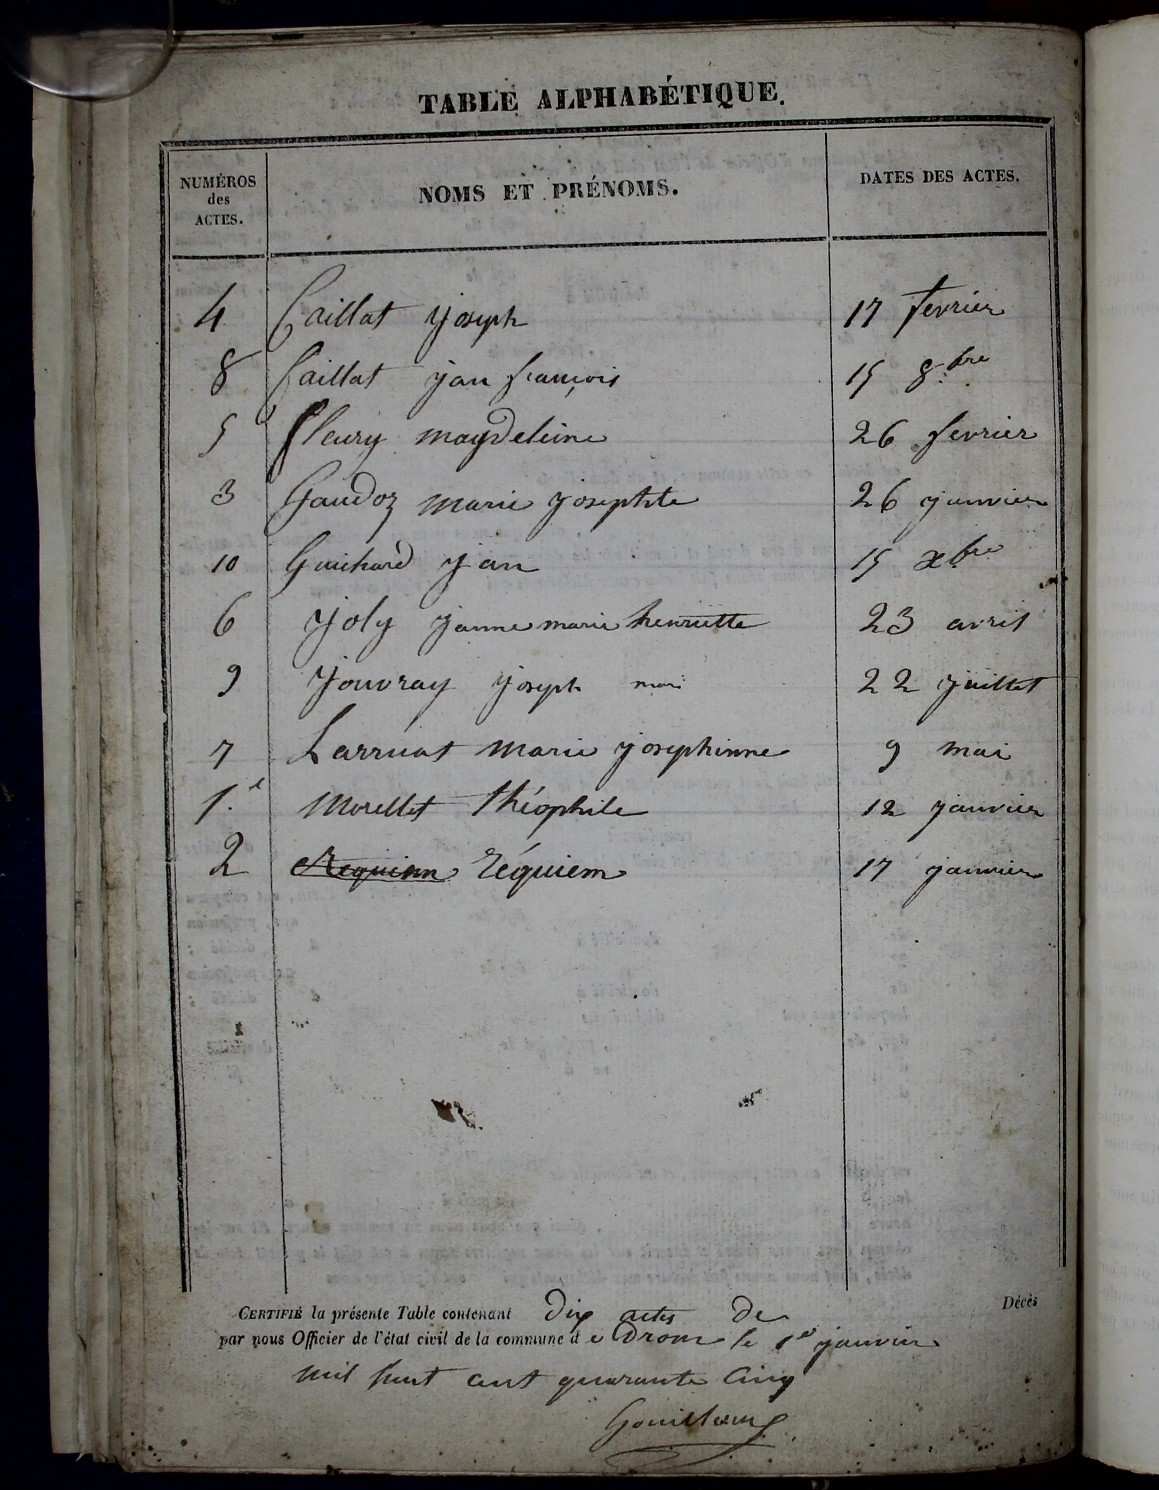 TABLE ALPHABÉTIQUE.
NUMÉROS des ACTES. NOMS ET PRÉNOMS. DATES DES ACTES.
4 Caillat Joseph 17 fevrier
8 Caillat jan françois 15 8.bre
5 fleury magdeleine 26 fevrier
3 Gaudoz marie josephte 26 janvier
10 Guichard jan 15 xbre
6 Joly janne marie henriette 23 avril
9 Jouvray joseph mari 22 juillet
7 Larruat marie josephinne 9 mai
1.e Morellet théophile 12 janvier
2 Requiem réquiem 17 janvier
CERTIFIÉ la présente Table contenant Dix actes De Décès
par nous Officier de l'état civil de la commune d e Drom le 1er janvier
mil huit cent quarante Cinq